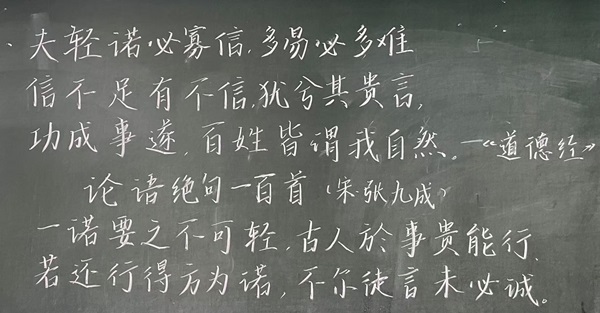 夫轻诺必寡信,多易必多难
信不足有不信,犹兮其贵言,
功成事遂,百姓皆谓我自然。—《道德经》
论语绝句一百首(宋·张九成)
一诺要之不可轻,古人於事贵能行,
若还行得方为诺,不尔徒言未必诚。